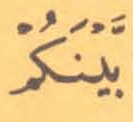 بَّيْنَكُمْ